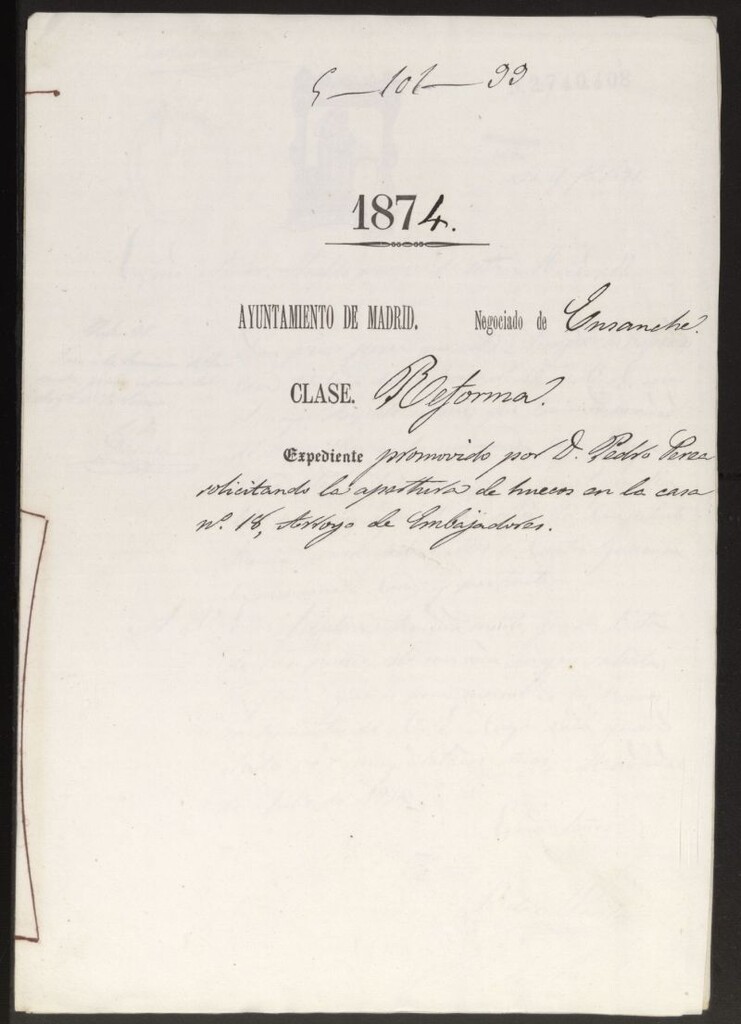 5-101-99
1874.
AYUNTAMIENTO DE MADRID. Negociado de Ensanche.
CLASE. Reforma.
Expediente promovido por D. Pedro Perea
solicitando la apertura de huecos en la casa
nº. 18, Arroyo de Embajadores.